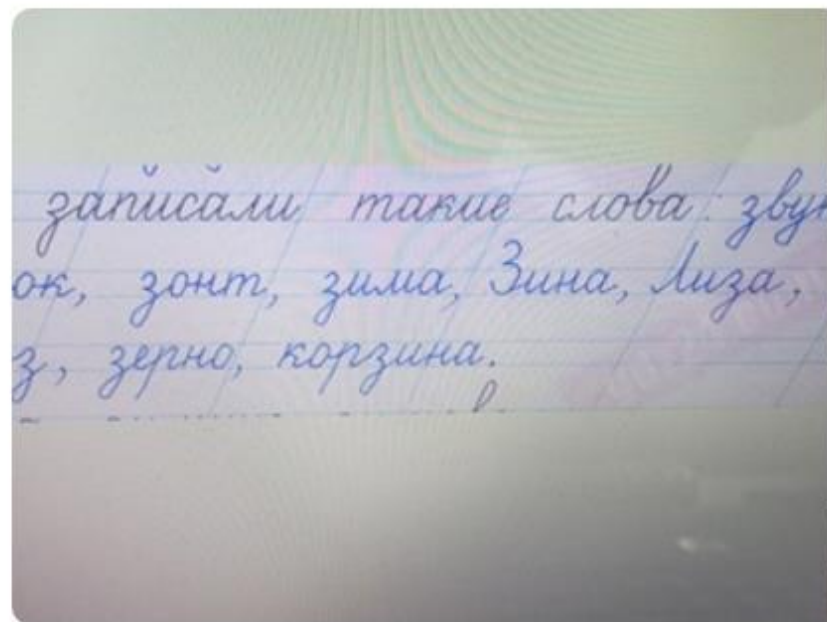 записали такие слова: звук
ок, зонт, зима, Зина, Лиза,
з, зерно, корзина.